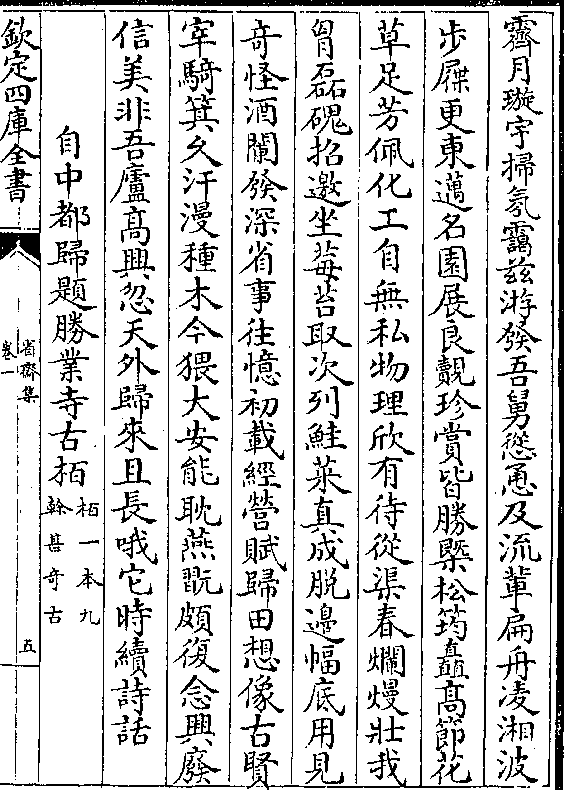 霽月璇宇掃氛靄兹㳺發吾舅慫恿及流輩扁舟凌湘波
步屧更東邁名園展良覿珍賞皆勝槩松筠矗高節花
草足芳佩化工自無私物理欣有待從渠春爛熳壯我
胷磊磈招邀坐莓苔取次列鮭菜真成脱邉幅底用見
竒怪酒闌發深省事往憶初載經營賦歸田想像古賢
宰騎箕乆汗漫種木今猥大安能耽燕翫頗復念興廢
信美非吾廬高興忽天外歸來且長哦它時續詩話
自中都歸題勝業寺古栢
栢一本九
榦甚竒古
欽定四庫全書
省齋集
卷一
五